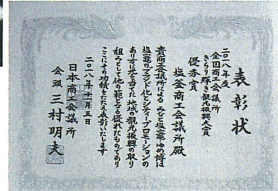 表彰状
二〇一八年度
全国商工会議所
きらり輝き観光振興大賞
優秀賞
塩釜商工会議所殿
貴商工会議所による みなと塩竈・ゆめ博は
塩竈のブランド化とシティプロモーションの
あり方は先を見すえた地域の観光振興の取り
組みとして他の範として優れたものであり
ここにその功績をたたえ表彰いたします
二〇一八年十一月五日
日本商工会議所
会頭 三村明夫